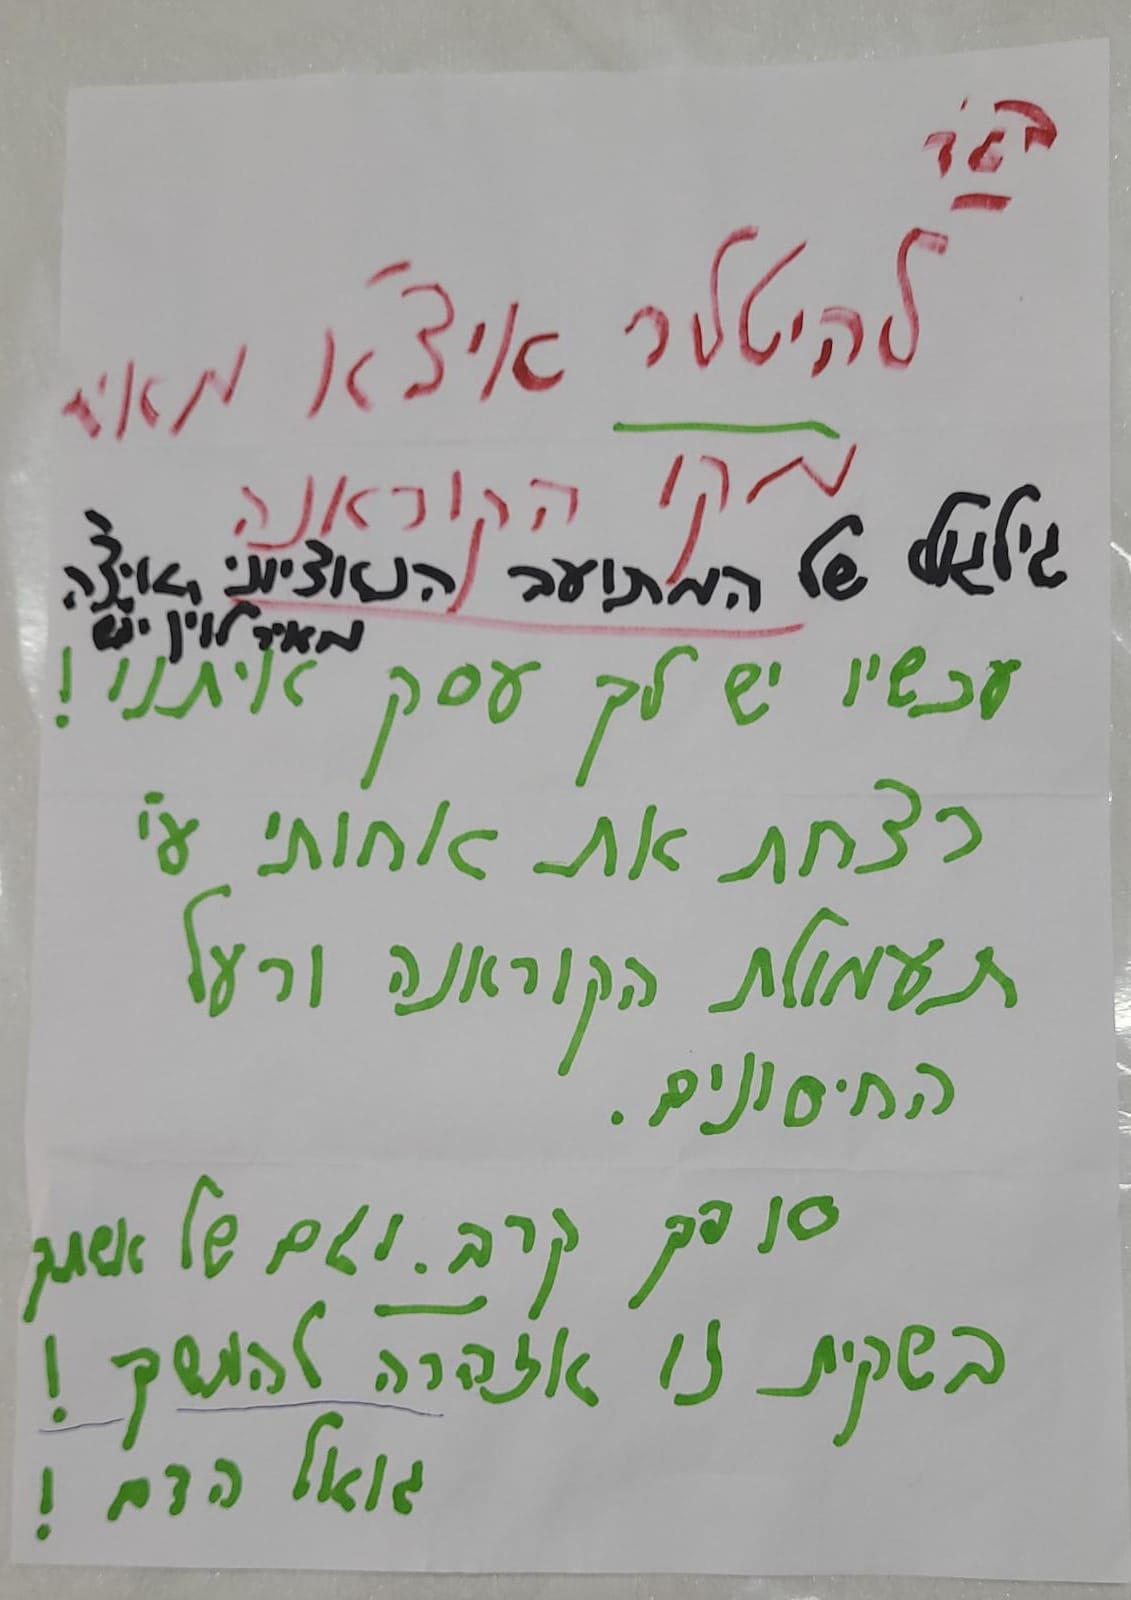 בגד
להיטלר איצ'א מאיר
מקו הקוראנה
גילגול של המתועב הנאוציוני איצ'ה
מאיר לוין יש
עכשיו יש לך עסק איתנו !
רצחת את אחותי ע"י
תעמולת הקוראנה ורעל
החיסונים .
סופך קרב . וגם של אשתך
בשקית זו אזהרה להמשך !
גואל הדם !